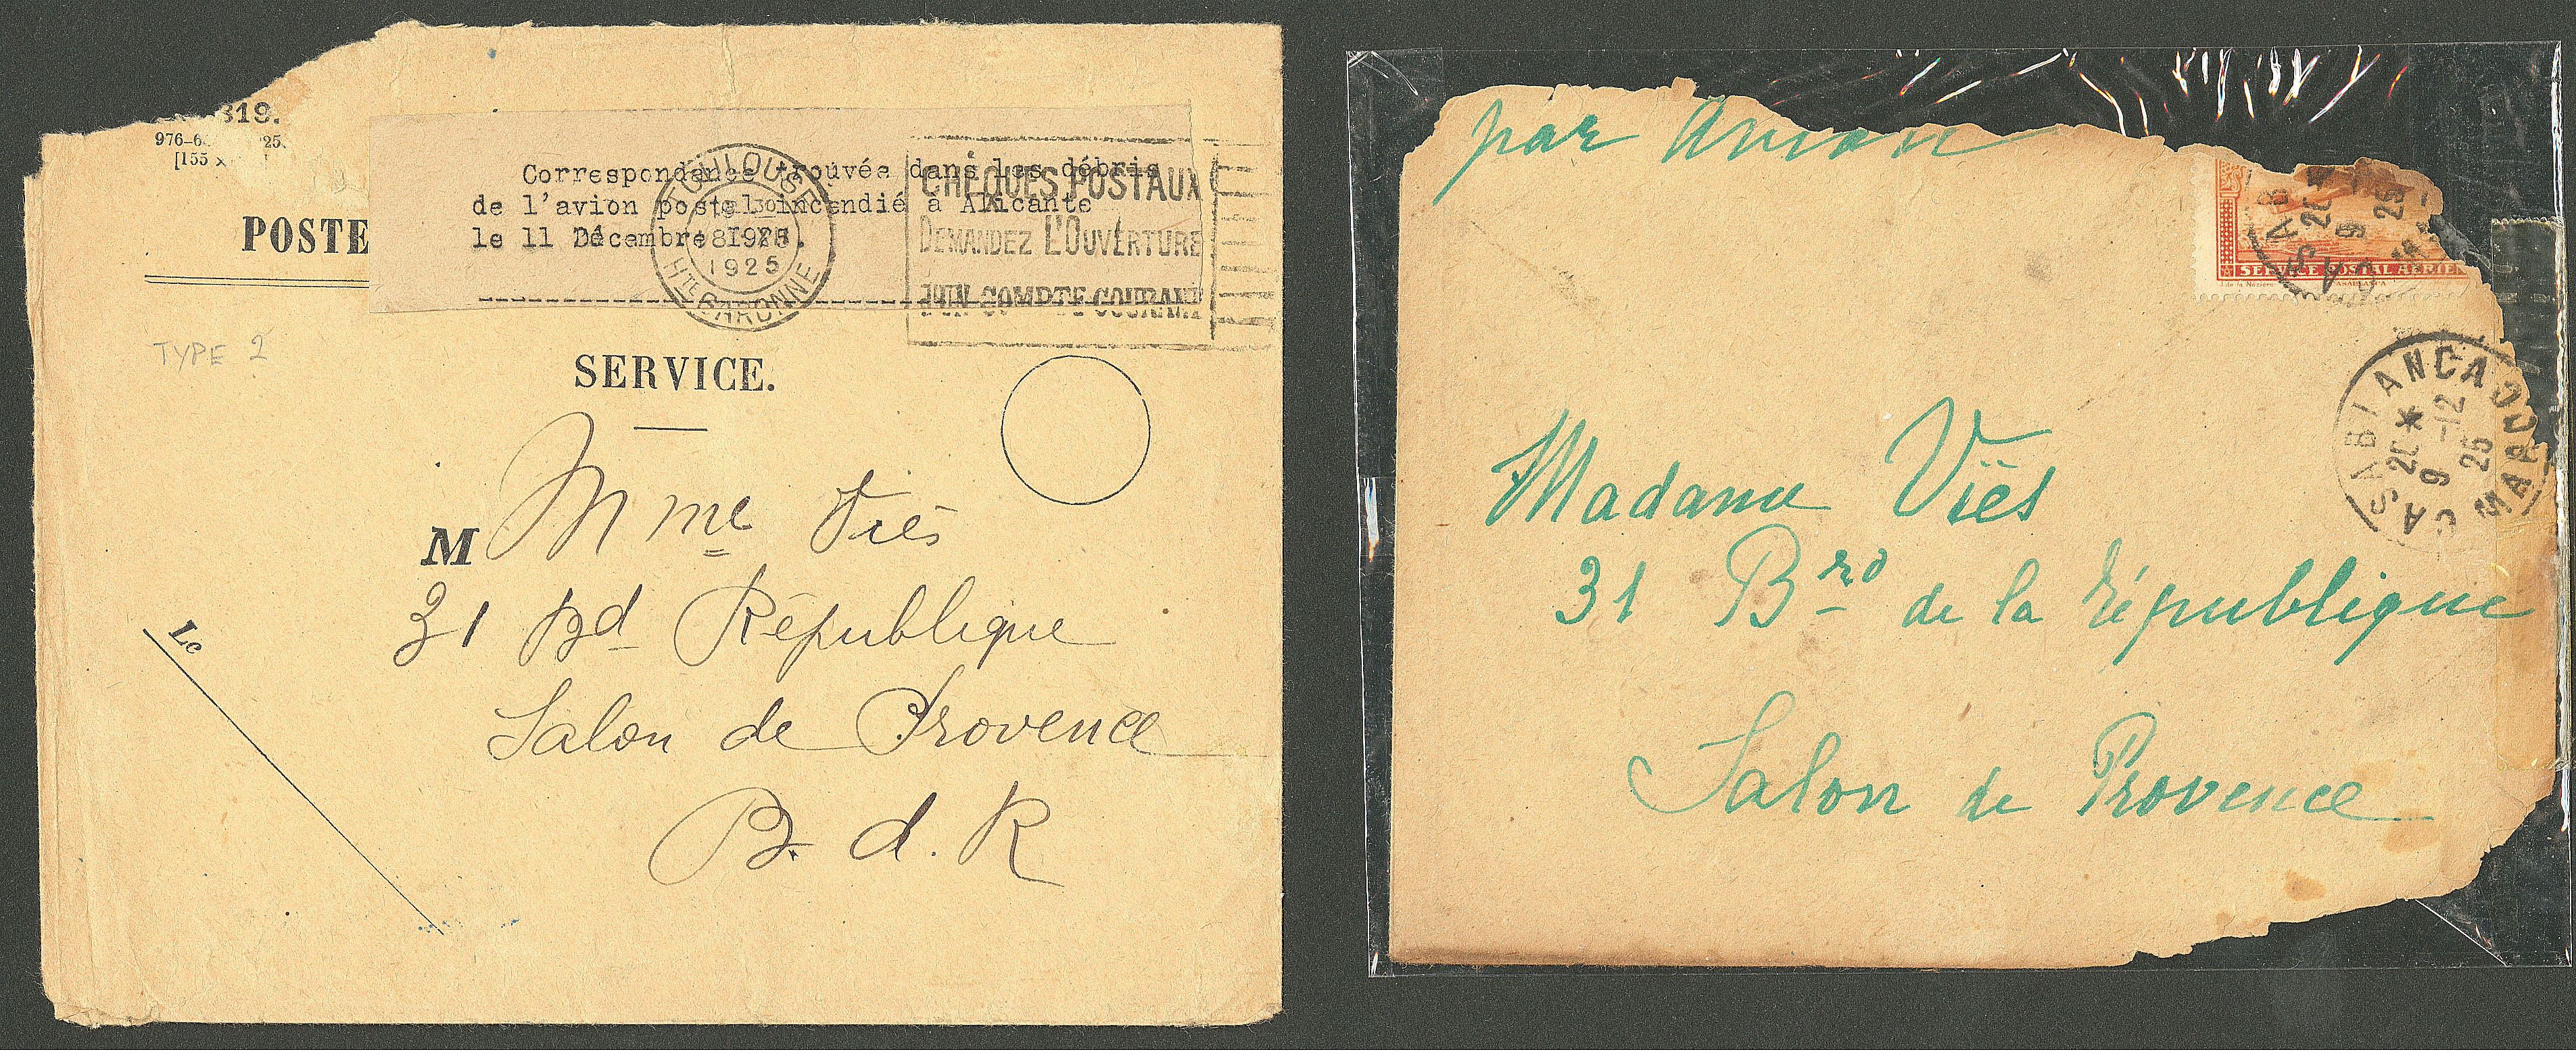 319.
[155 x
POSTE
Correspondance trouvée dans les débris
de l'avion postal incendié à Alicante
le 11 Décembre 1925.
TOULOUSE
1925
HTE GARONNE
CHÈQUES POSTAUX
DEMANDEZ L'OUVERTURE
D'UN COMPTE COURANT
TYPE 2
SERVICE.
M Mme Viès
31 Bd République
Salon de Provence
B. d. R
Le
par Avion
SERVICE POSTAL AÉRIEN
CASABLANCA
CASABLANCA
20 *
9 -12
25
MAROC
Madame Viès
31 Brd de la République
Salon de Provence